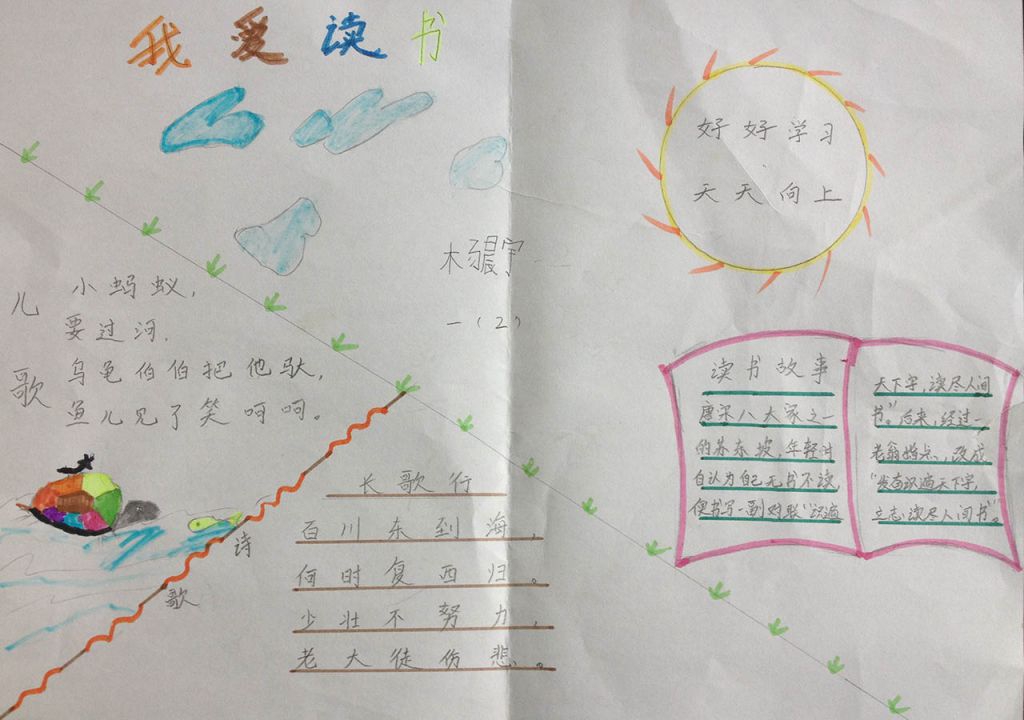 我爱读书
好好学习
天天向上
一（2）
儿歌
小蚂蚁，
要过河.
乌龟伯伯把他驮，
鱼儿见了笑呵呵。
诗歌
长歌行
百川东到海，
何时复西归。
少壮不努力，
老大徒伤悲。
读书故事
唐宋八大家之一
的苏东坡，年轻时
自认为自己无书不读，
便书写一副对联“识遍
天下字，读尽人间
书”。后来，经过一
老翁指点，改成
“发奋识遍天下字，
立志读尽人间书”。